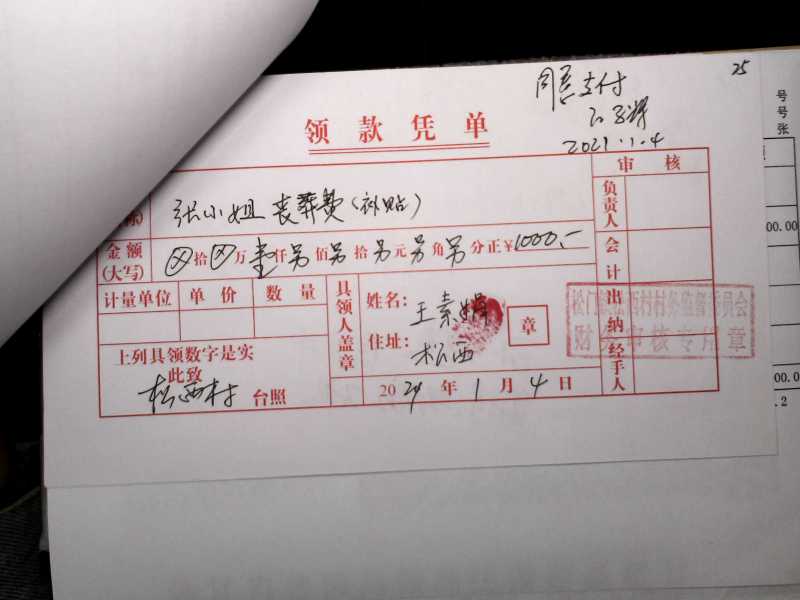 25
同意支付
2021.1.4
领款凭单
审核
张小姐 丧葬费(补贴)
负责人
金额(大写) ⊗拾⊗万壹仟另佰另拾另元另角另分正¥1000.-
会计
计量单位 单价 数量
具领人盖章
姓名: 王素娟
章
住址: 松西
出纳
经手人
财务审核专用章
上列具领数字是实
此致
松西村 台照
2021年1月4日
号
号
张
00.00
00.0
.2